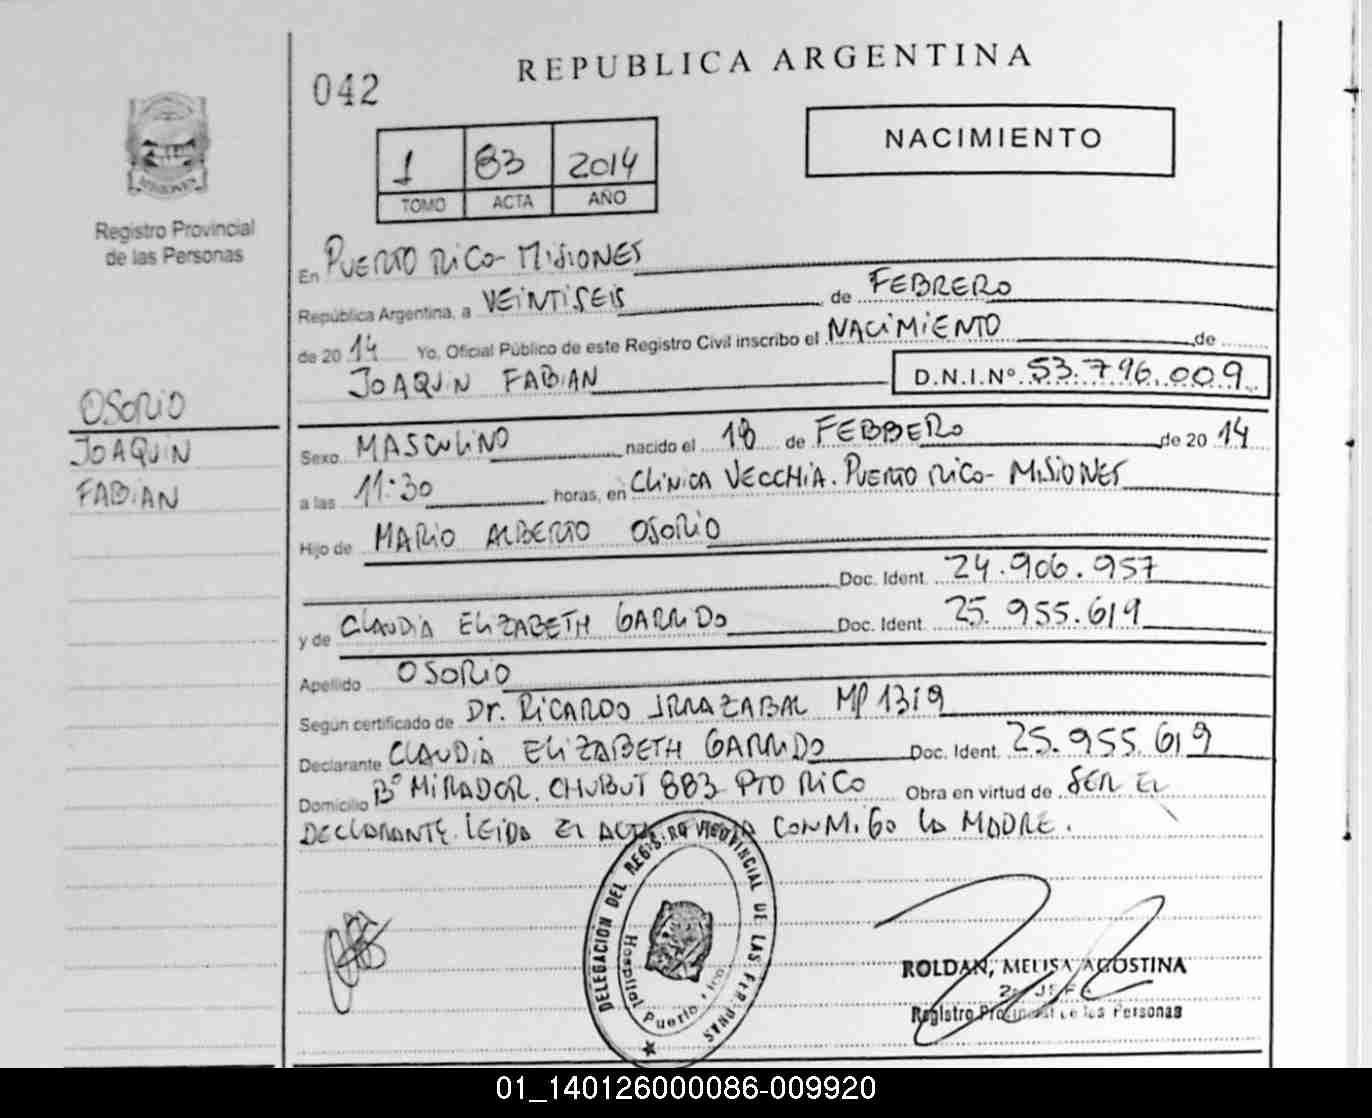 042
REPUBLICA ARGENTINA
NACIMIENTO
1 83 2014
TOMO ACTA AÑO
MISIONES
Registro Provincial
de las Personas
En PUERTO RICO - MISIONES
República Argentina, a VEINTISEIS de FEBRERO
de 20 14 Yo, Oficial Público de este Registro Civil inscribo el NACIMIENTO de
JOAQUIN FABIAN D.N.I.Nº 53.796.009
OSORIO
JOAQUIN
FABIAN
Sexo MASCULINO nacido el 18 de FEBRERO de 20 14
a las 11:30 horas, en CLINICA VECCHIA. PUERTO RICO - MISIONES
Hijo de MARIO ALBERTO OSORIO
Doc. Ident. 24.906.957
y de CLAUDIA ELIZABETH GARRIDO Doc. Ident. 25.955.619
Apellido OSORIO
Según certificado de Dr. RICARDO IRRAZABAL MP 1319
Declarante CLAUDIA ELIZABETH GARRIDO Doc. Ident. 25.955.619
Domicilio Bº MIRADOR. CHUBUT 883 PTO RICO Obra en virtud de SER EL
DECLARANTE. LEIDA EL ACTA CONMIGO LA MADRE.
DELEGACIÓN DEL REGISTRO PROVINCIAL DE LAS PERSONAS
Hospital Puerto Rico
ROLDAN, MELISA AGOSTINA
Registro Provincial de las Personas
01_140126000086-009920